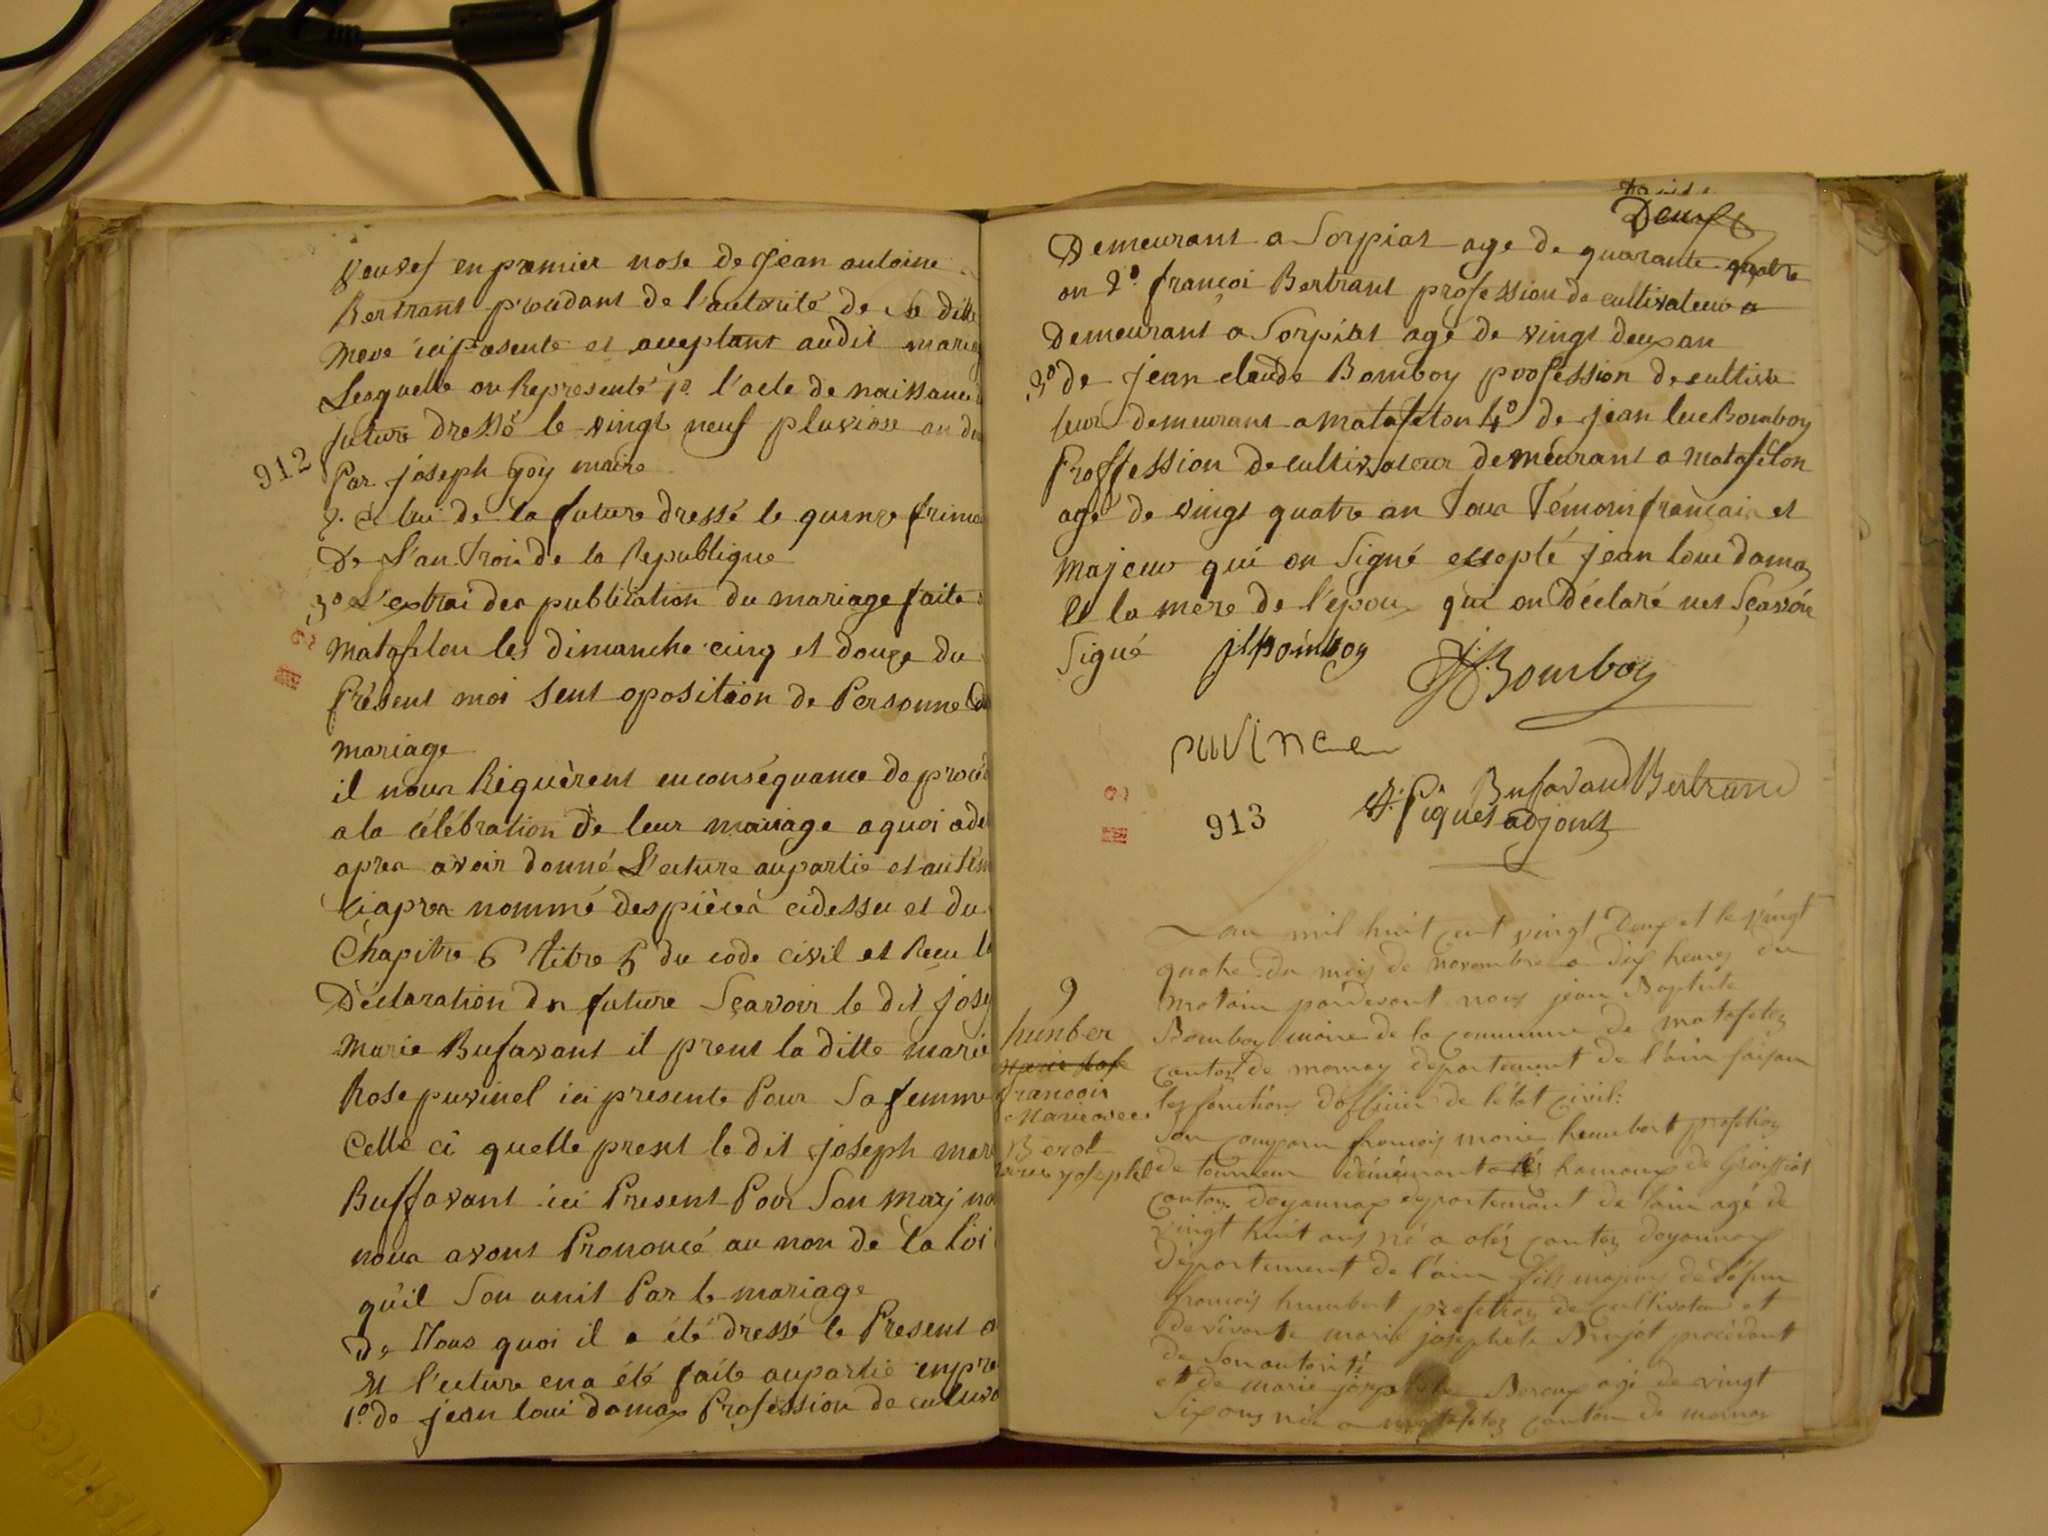 veuves en premier nose de Jean antoine
Bertrant procédant de l'autorité de sa ditte
mere ici presente et aceptant audit mariag
Lesquelle on Representé 1º l'acte de naissance d
future dressé le vingt neuf pluviose an d
912
Par joseph Goy maire
2. Celui de la future dressé le quinze frima
de L'an Troi de la Republique
3º L'extrai des publication du mariage faite
matafelon les dimanche cinq et douze du
Présent moi sent oposition de Personne
mariage
il nous Réquèrent en conséquance de procéd
a la célébration de leur mariage a quoi ade
apres avoir donné L'ecture au partie et au tém
ci apres nommé des pièces cidessu et du
Chapitre 6 titre 5 du code civil et Recu l
Déclaration du future Sçavoir le dit jose
marie Bufavant il prent la ditte marie
Rose puvinel ici presente Pour Sa femme
Celle ci quelle prent le dit joseph mar
Buffavant ici Present Pour Son marj no
nous avons Prononcé au non de la loi
qu'il Son unit Par le mariage
de Nous quoi il a été dressé le Present a
et l'ecture en a été faite au partie en pre
1º de jean loui damas Profession de cultiva
Deux
Demeurant a Sorpiat age de quarante quatre
an 2º françoi Bertrant profession de cultivateur a
Demeurant a Sorpiat agé de vingt deux an
3º de jean claude Bomboy profession de cultiva
teur demeurant a matafelon 4º de jean luc Bomboy
Proffession de cultivateur demeurant a matafelon
agé de vingt quatre an Tous Témoin français et
majeur qui on Signé exsepté jean loui damas
et la mere de l'épous qui on Déclaré net Sçavoir
Signé
Bomboy
puvinel
Bufavand Bertrand
Piquet adjoint
913
Lan mil huit cent vingt Deux et le vingt
quatre du mois de novembre a dix heures du
matain pardevant nous jean Baptiste
9
Bomboy maire de la commune de matafelon
hunber
canton de mornay departement de l'ain faisan
francois
les fonctions d'officier de l'état civil:
Marie avec
Son comparu francois marie humbert profession
Berot
de tourneur demeurant a hameaux de Groissiat
marie josephte
canton doyonnax departement de lain agé de
vingt huit ans né a canton doyonnax
département de l'ain fils majeur de Défun
francois humbert profession de cultivateur et
de vivante marie josephete procédant
de Son autorité
et de marie josephte agé de vingt
Six ans née a matafelon canton de mornay